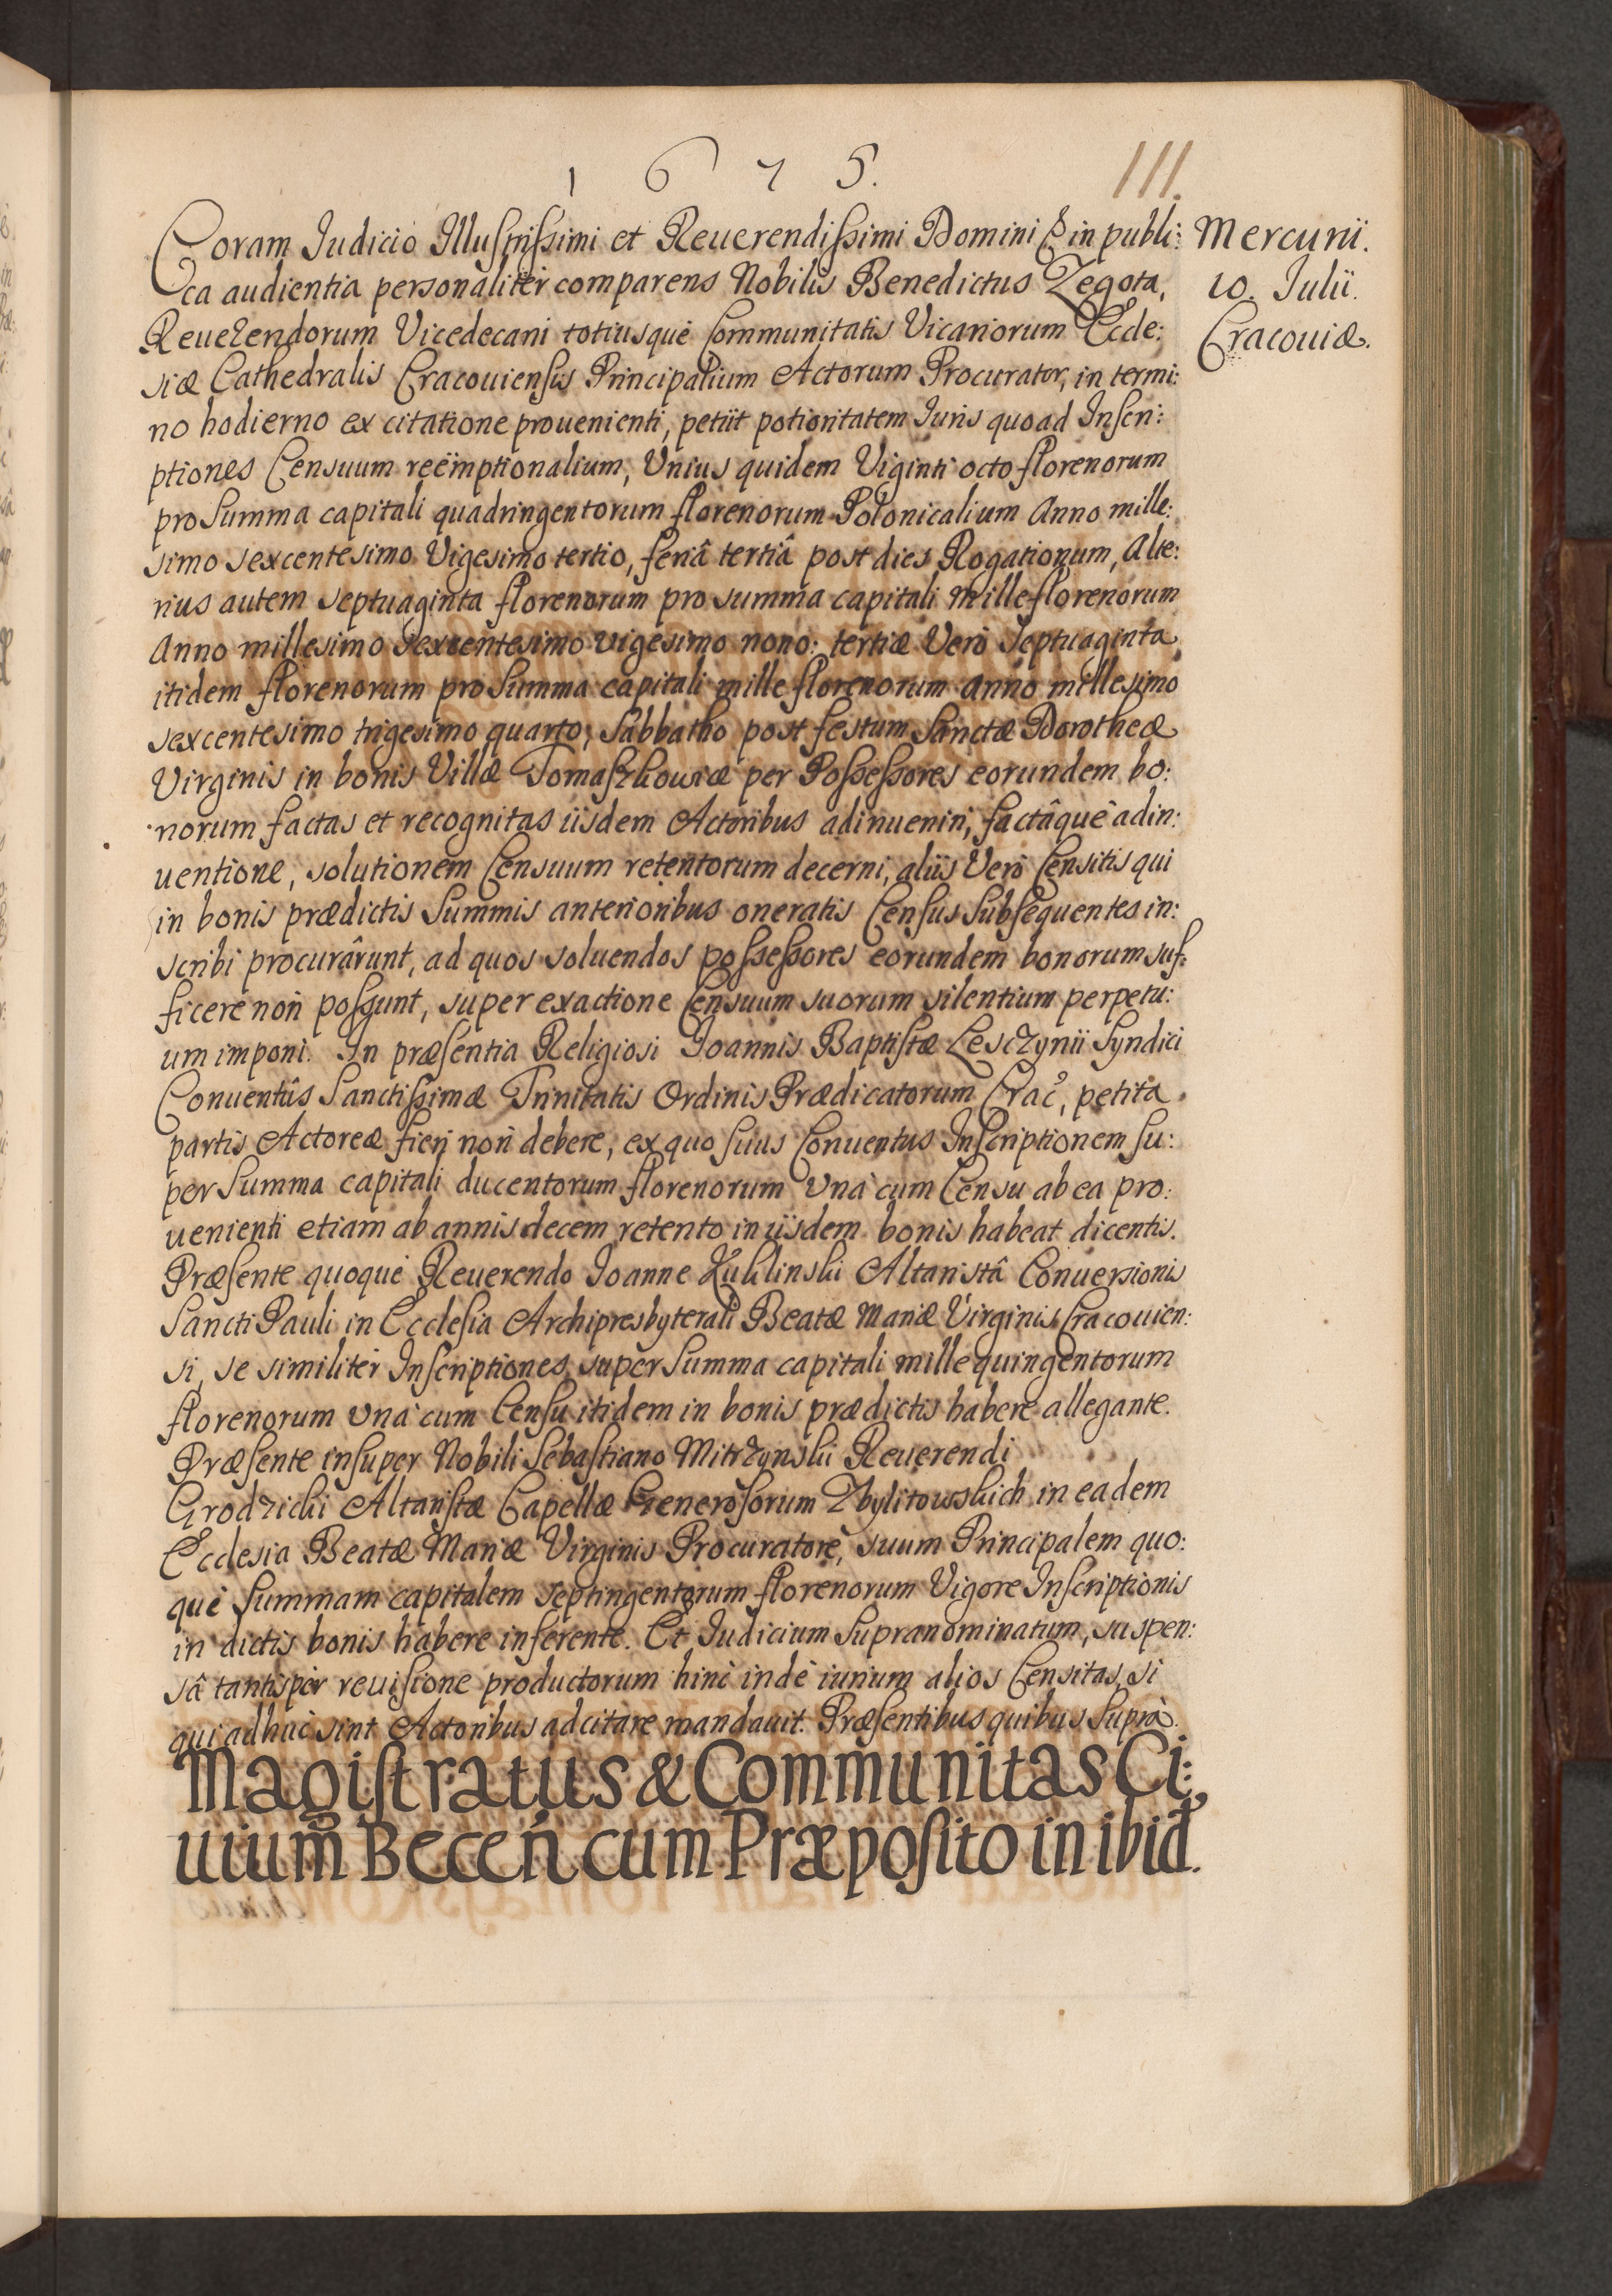 1675.
111.
Coram Iudicio Illustrissimi et Reuerendissimi Domini & in publi:
Mercurii.
ca audientia personalitèr comparens Nobilis Benedictus Zegota,
10. Iulii.
Reuerendorum Vicedecani totiusquè Communitatis Vicariorum Eccle:
Cracouiæ.
siæ Cathedralis Cracouiensis Principalium Actorum Procurator, in termi:
no hodierno ex citatione prouenienti, petiit potioritatem Iuris quoad Inscri:
ptiones Censuum reëmptionalium, Vnius quidem Viginti octo florenorum
pro Summa capitali quadringentorum florenorum Polonicalium Anno mille:
simo sexcentesimo Vigesimo tertio, feriâ tertiâ post dies Rogationum, Alte:
rius autem septuaginta florenorum pro summa capitali mille florenorum
Anno millesimo sexcentesimo vigesimo nono: tertiæ Verò Septuaginta
itidem florenorum pro Summa capitali mille florenorum anno millesimo
sexcentesimo trigesimo quarto, Sabbatho post festum Sanctæ Dorotheæ
Virginis in bonis Villæ Tomaszkowiæ per Possessores eorundem bo:
norum factas et recognitas iisdem Actoribus adinueniri, factâquè adin:
uentione, solutionem Censuum retentorum decerni, aliis Verò Censitis qui
in bonis prædictis Summis anterioribus oneratis Census Subsequentes in:
scribi procurârunt, ad quos soluendos possessores eorundem bonorum suf:
ficere non possunt, super exactione Censuum suorum silentium perpetu:
um imponi. In præsentia Religiosi Ioannis Baptistæ Lesczynii Syndici
Conuentûs Sanctissimæ Trinitatis Ordinis Prædicatorum Crac, petita
partis Actoreæ fieri non debere, ex quo suus Conuentus Inscriptionem su:
per Summa capitali ducentorum florenorum Vnà cum Censu ab ea pro:
uenienti etiam ab annis decem retento in iisdem bonis habeat dicentis.
Præsente quoquè Reuerendo Ioanne Kuklinski Altaristâ Conuersionis
Sancti Pauli in Ecclesia Archipresbyterali Beatæ Mariæ Virginis Cracouien:
si, se similitèr Inscriptiones super Summa capitali mille quingentorum
florenorum vnà cum Censu itidem in bonis prædictis habere allegante.
Præsente insuper Nobili Sebastiano Mitrzynski Reuerendi
Grodzicki Altaristæ Capellæ Generosorum Zbylitowskich in eadem
Ecclesia Beatæ Mariæ Virginis Procuratore, suum Principalem quo:
què Summam capitalem septingentorum florenorum Vigore Inscriptionis
in dictis bonis habere inferente. Et Iudicium Supranominatum, suspen:
sâ tantispèr reuisione productorum hinc indè iurium alios Censitas, si
qui adhùc sint Actoribus adcitare mandauit. Præsentibus quibus Suprà.
Magistratus & Communitas Ci:
uium Beceñ cum Præposito in ibid.